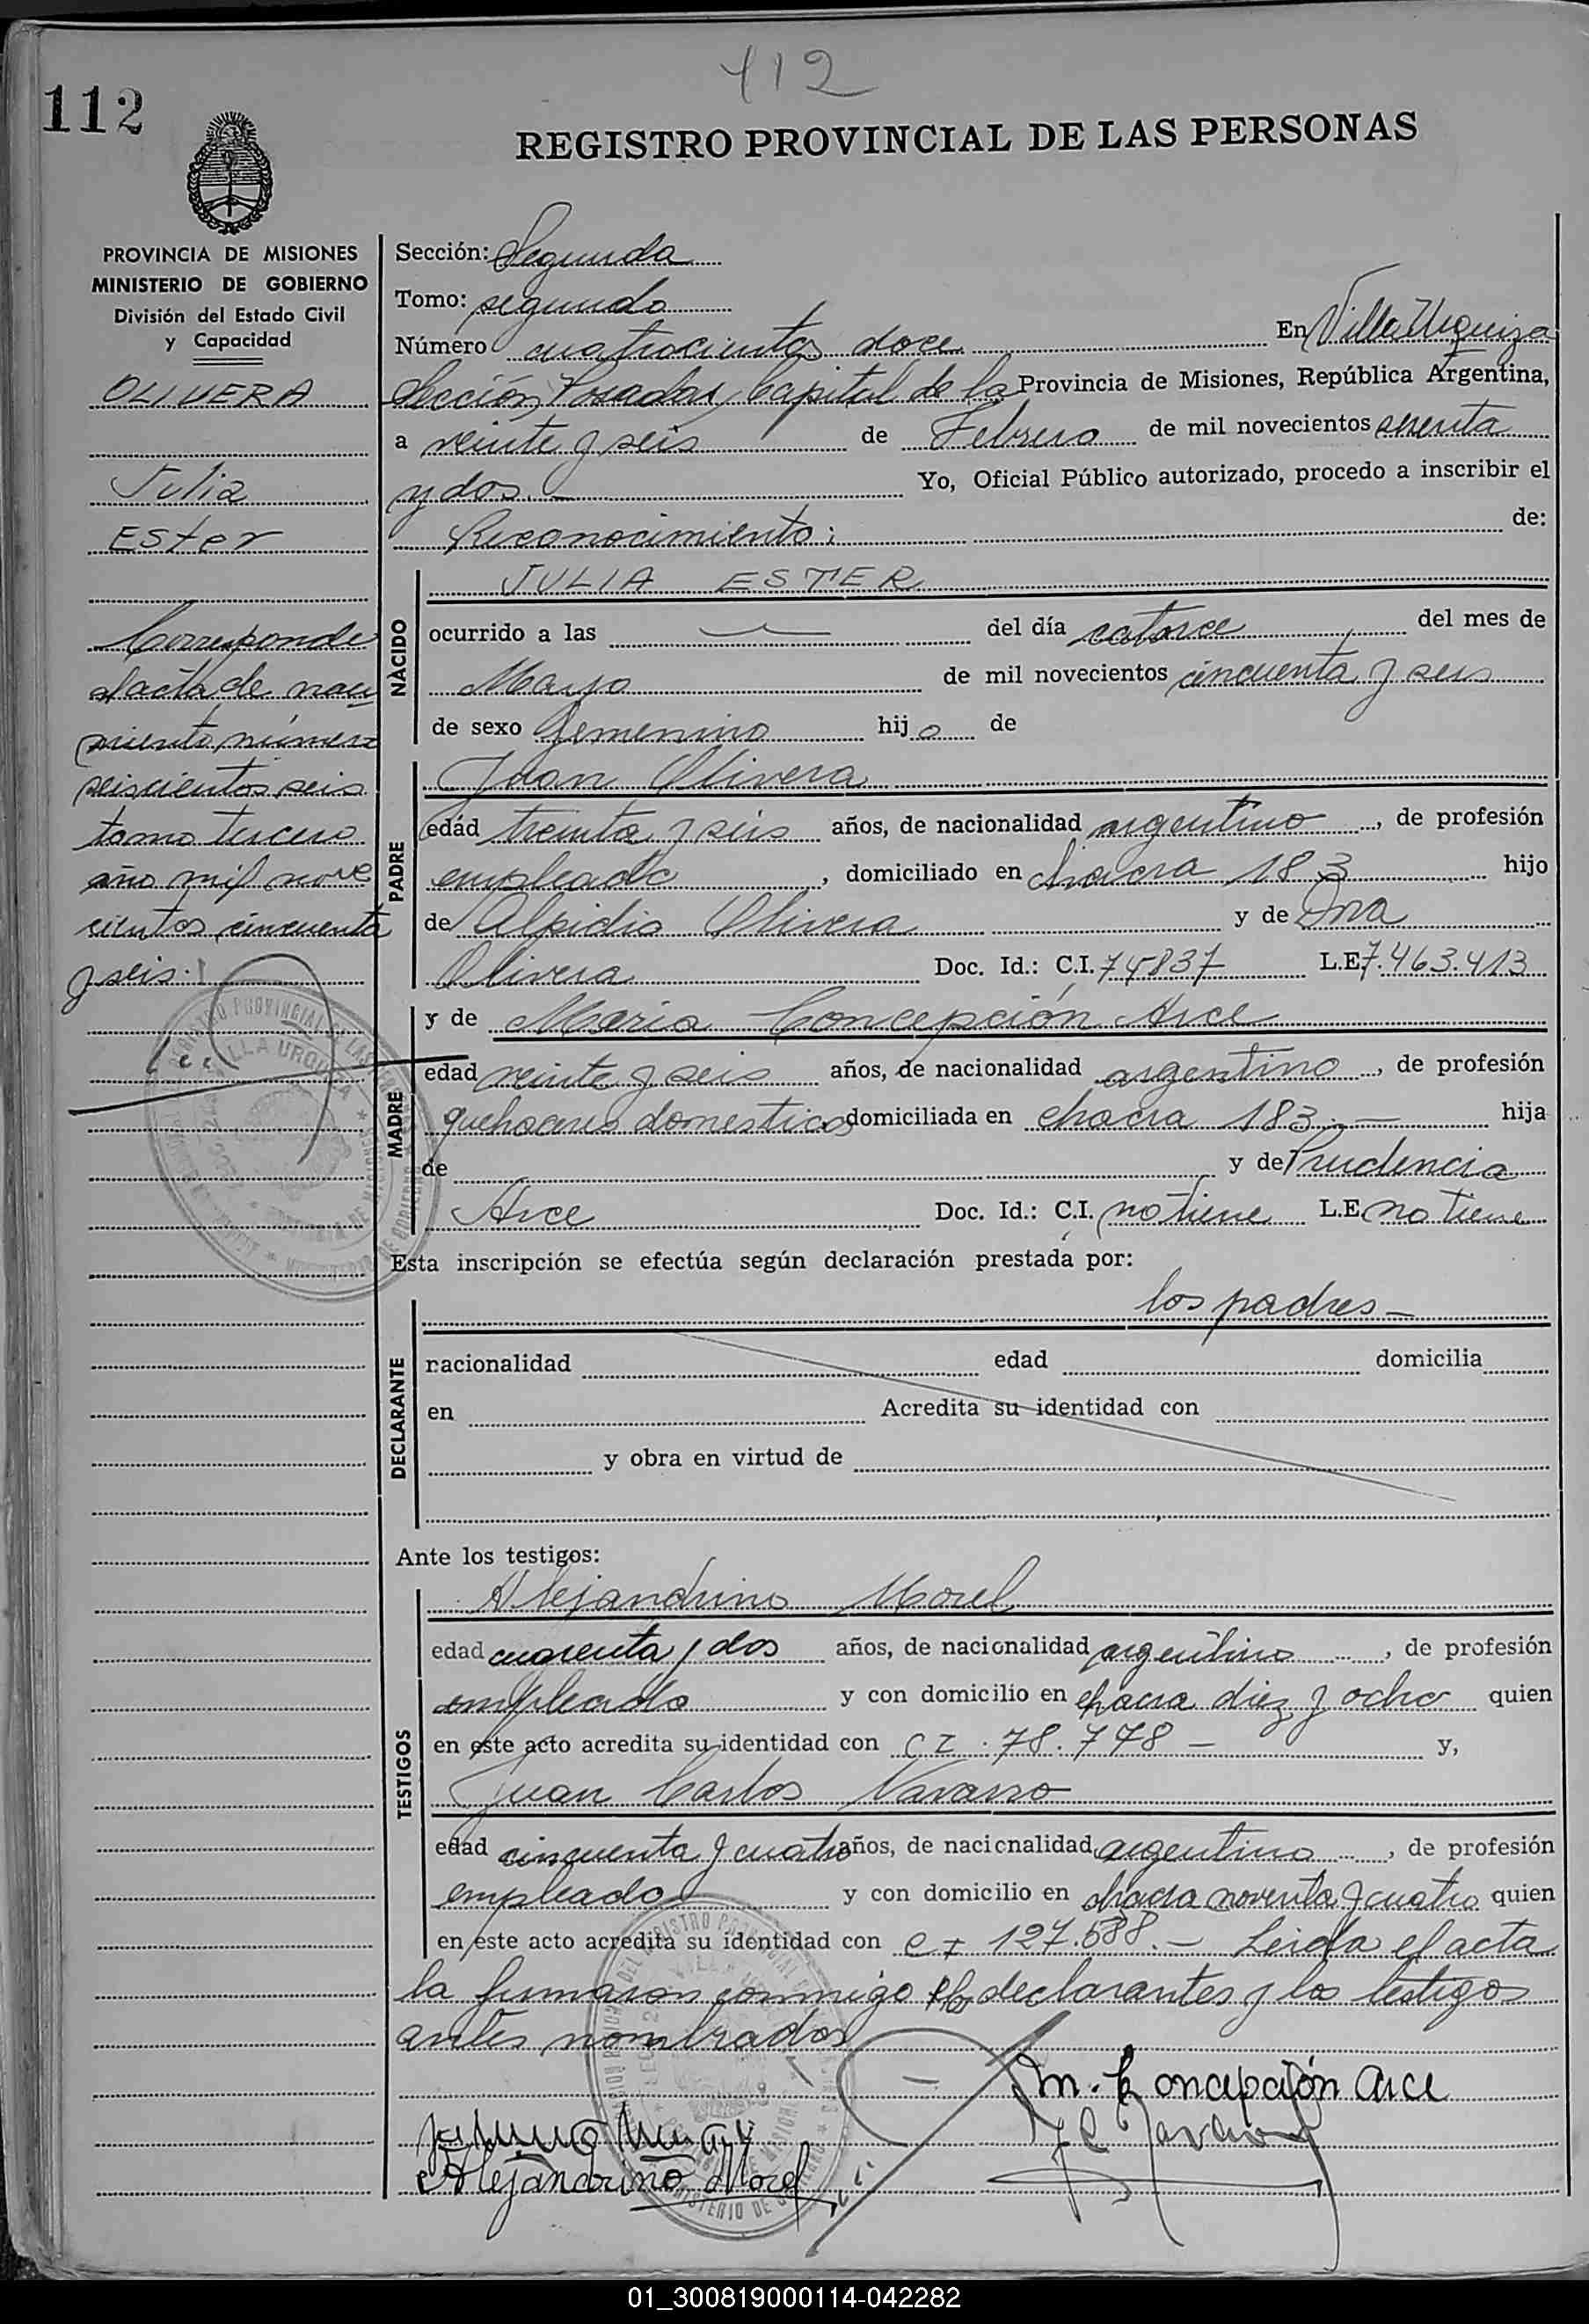 412
112
REGISTRO PROVINCIAL DE LAS PERSONAS
PROVINCIA DE MISIONES
MINISTERIO DE GOBIERNO
División del Estado Civil
y Capacidad
OLIVERA
Julia
Ester
Corresponde
al acta de naci
miento número
seiscientos seis
tomo tercero
año mil nove
cientos cincuenta
y seis.
Sección: Segunda
Tomo: segundo
Número cuatrocientos doce En Villa Urquiza
Sección Posadas, Capital de la Provincia de Misiones, República Argentina,
a veinte y seis de Febrero de mil novecientos sesenta
y dos. Yo, Oficial Público autorizado, procedo a inscribir el
Reconocimiento: de:
NACIDO
JULIA ESTER
ocurrido a las del día catorce del mes de
Mayo de mil novecientos cincuenta y seis
de sexo femenino hijo de
PADRE
Juan Olivera
edád treinta y seis años, de nacionalidad argentino, de profesión
empleado, domiciliado en chacra 183 hijo
de Alpidio Olivera y de Ana
Olivera Doc. Id.: C.I. 74837 L.E. 7.463.413
MADRE
y de Maria Concepción Arce
edad veinte y seis años, de nacionalidad argentino, de profesión
quehaceres domesticos domiciliada en chacra 183.— hija
de y de Prudencia
Arce Doc. Id.: C.I. no tiene L.E. no tiene
Esta inscripción se efectúa según declaración prestada por:
los padres—
DECLARANTE
racionalidad edad domicilia
en Acredita su identidad con
y obra en virtud de
Ante los testigos:
TESTIGOS
Alejandrino Morel
edad cuarenta y dos años, de nacionalidad argentino, de profesión
empleado y con domicilio en chacra diez y ocho quien
en este acto acredita su identidad con CI. 78.778— y,
Juan Carlos Navarro
edad cincuenta y cuatro años, de nacionalidad argentino, de profesión
empleado y con domicilio en chacra noventa y cuatro quien
en este acto acredita su identidad con CI 127.588.— Leida el acta
la firmaron conmigo los declarantes y los testigos
antes nombrados
m. Concepción Arce
J C Navarro
Alejandrino Morel
01_300819000114-042282